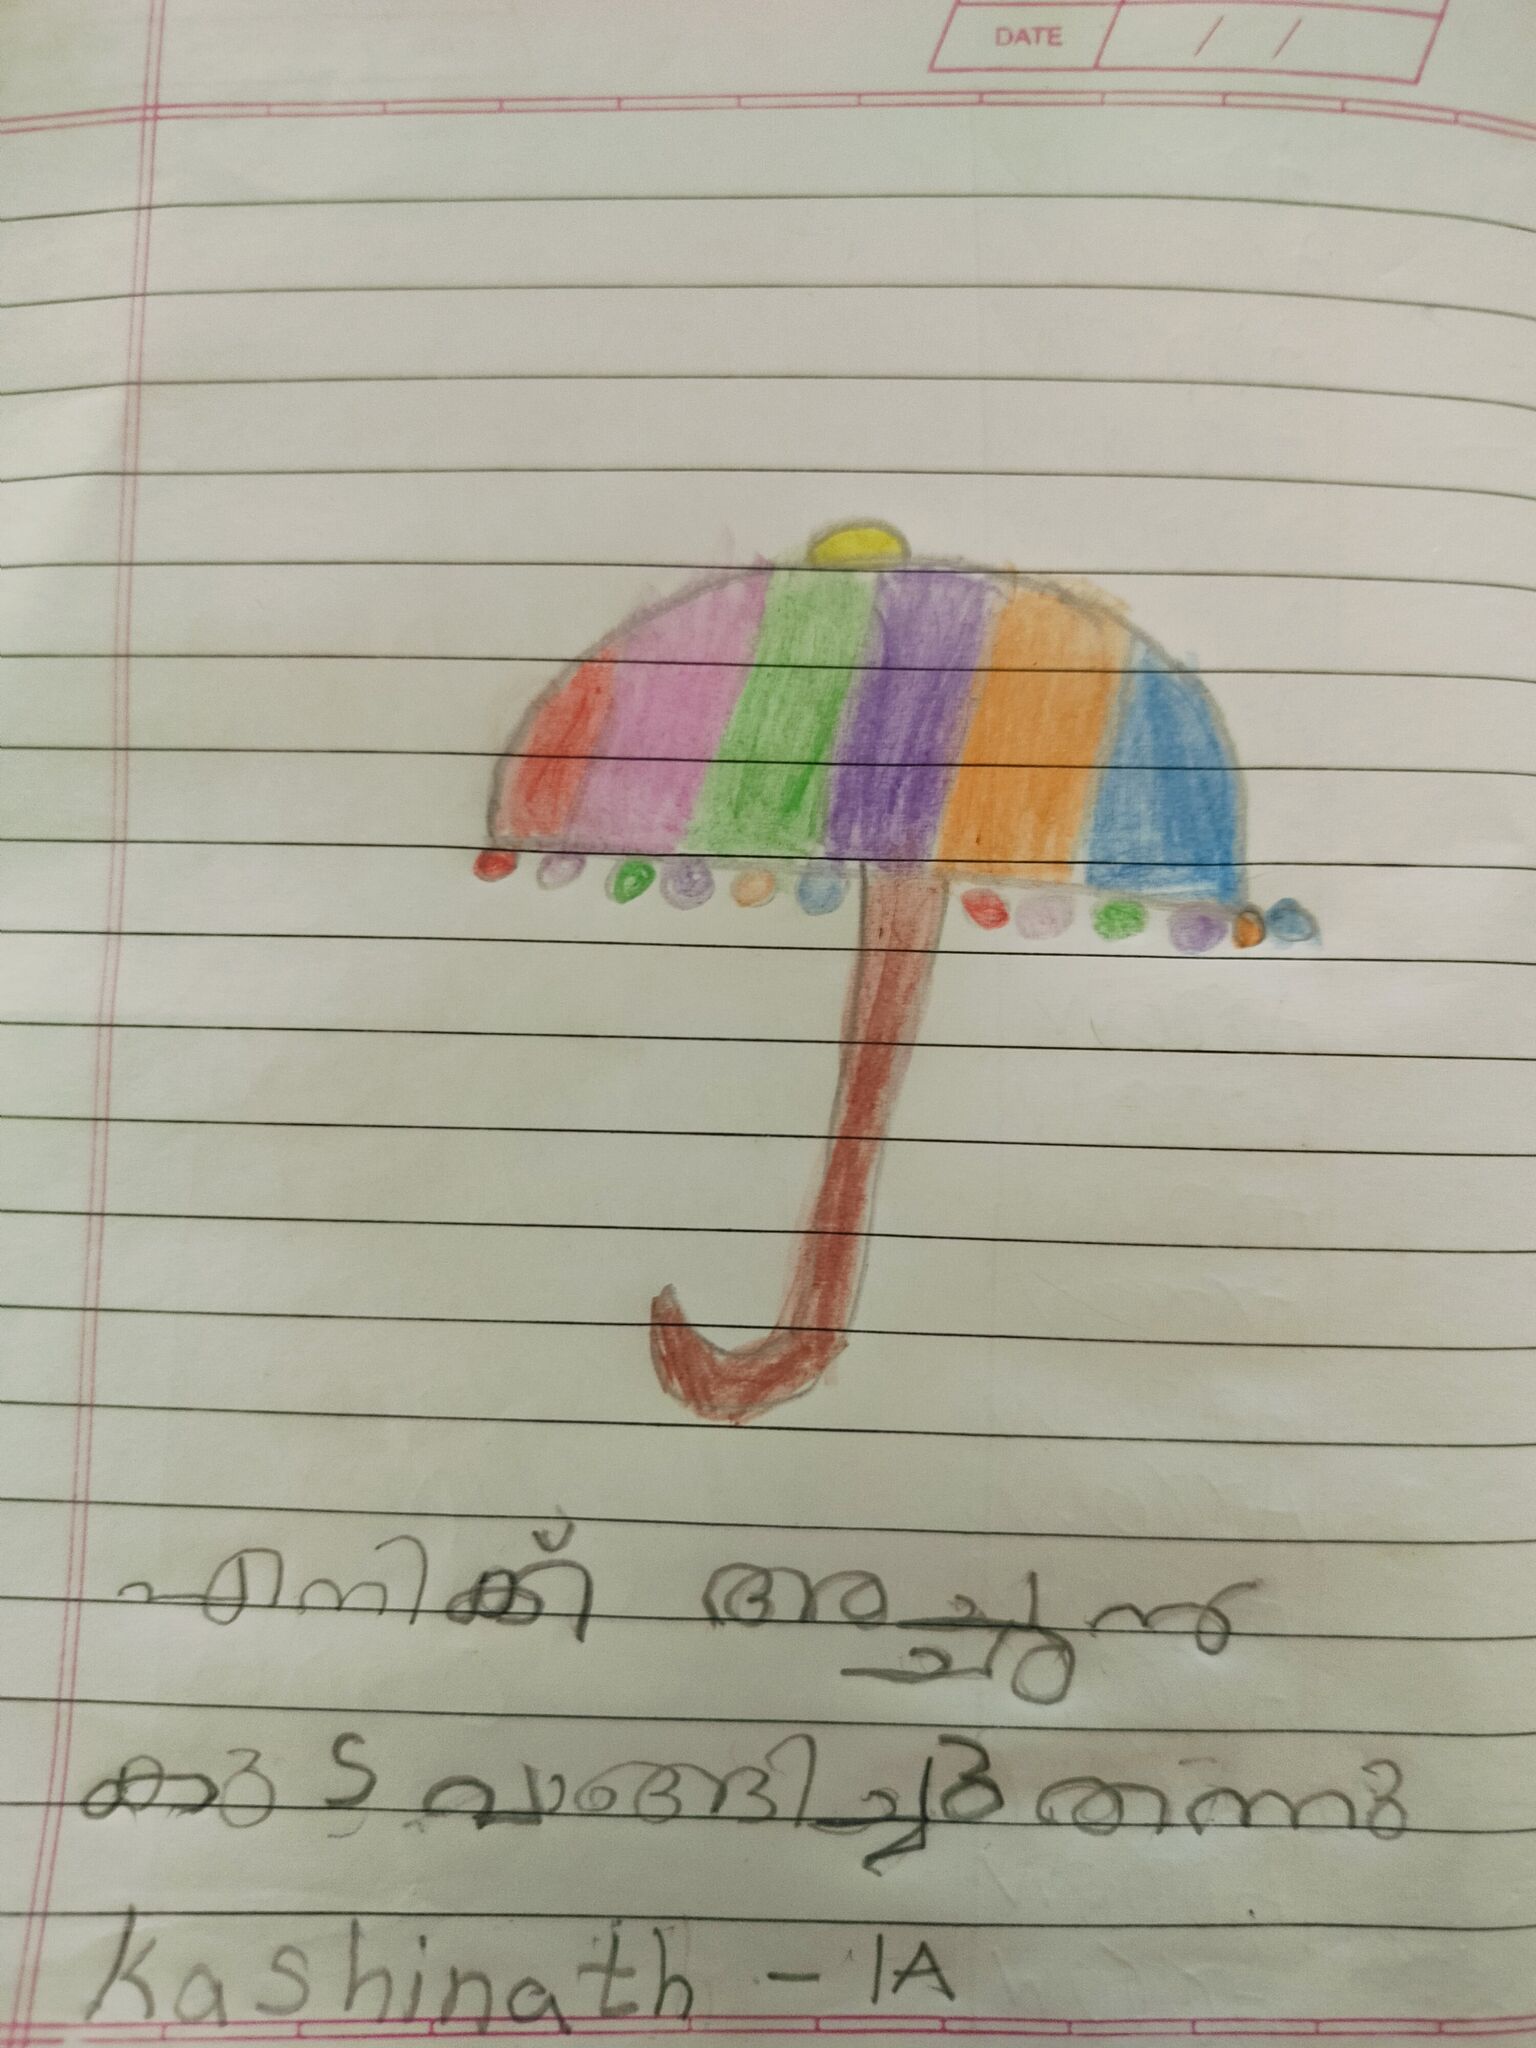 DATE / /
എനിക്ക് അച്ഛൻ
കുട വാങ്ങിച്ചു തന്നു
Kashinath - 1A